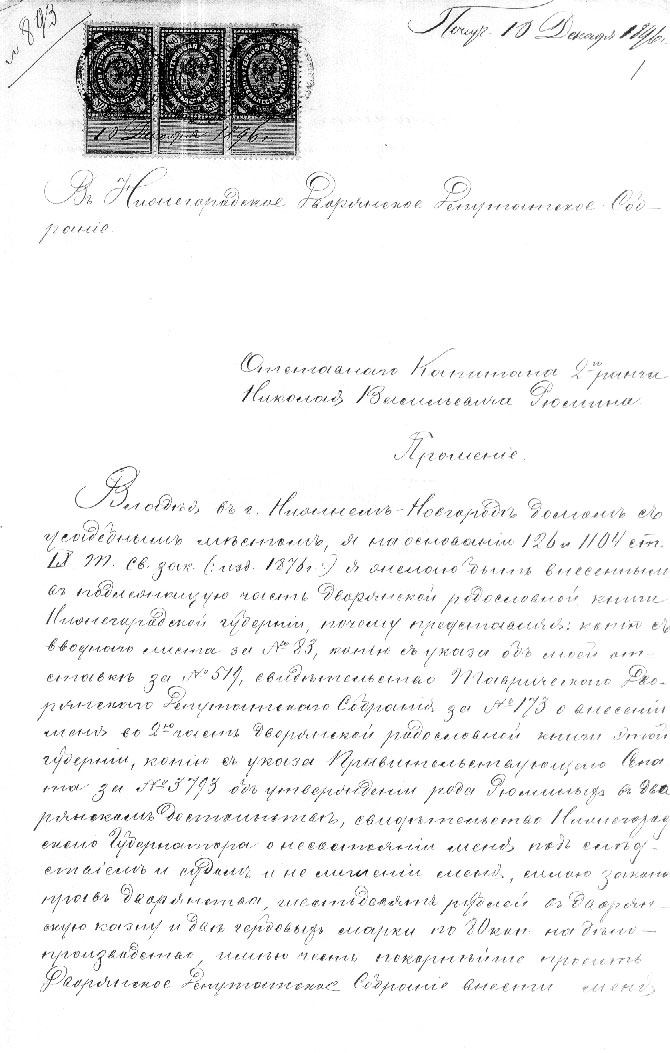 № 893
Получ. 10 Декабря 1896 г.
1
10 Декабря 1896 г.
Въ Нижегородское Дворянское Депутатское Соб-
раніе.
Отставнаго Капитана 2го ранга
Николая Васильевича Рюмина
Прошеніе.
Владѣя въ г. Нижнемъ-Новгородѣ домомъ съ
усадебнымъ мѣстомъ, я на основаніи 126 и 1104 ст.
IX т. Св. зак. (: изд. 1876 г.:) я желаю быть внесеннымъ
въ подлежащую часть дворянской родословной книги
Нижегородской губерніи, почему представляя: копію съ
вводнаго листа за № 83, копію съ указа объ моей от-
ставкѣ за № 519, свидѣтельство Таврическаго Дво-
рянскаго Депутатскаго Собранія за № 173 о внесеніи
меня во 2ую часть дворянской родословной книги этой
губерніи, копію съ указа Правительствующаго Сена
та за № 3793 объ утвержденіи рода Рюминыхъ въ два
рянскомъ достоинствѣ, свидѣтельство Нижегород
скаго Губернатора о несостояніи меня подъ слѣд-
ствіемъ и судомъ и не лишеніи меня, силою закона
правъ дворянства, шестьдесятъ рублей въ Дворян-
скую казну и двѣ гербовыхъ марки по 80 коп. на дѣло-
производство, имѣю честь покорнѣйше просить
Дворянское Депутатское Собраніе внести меня